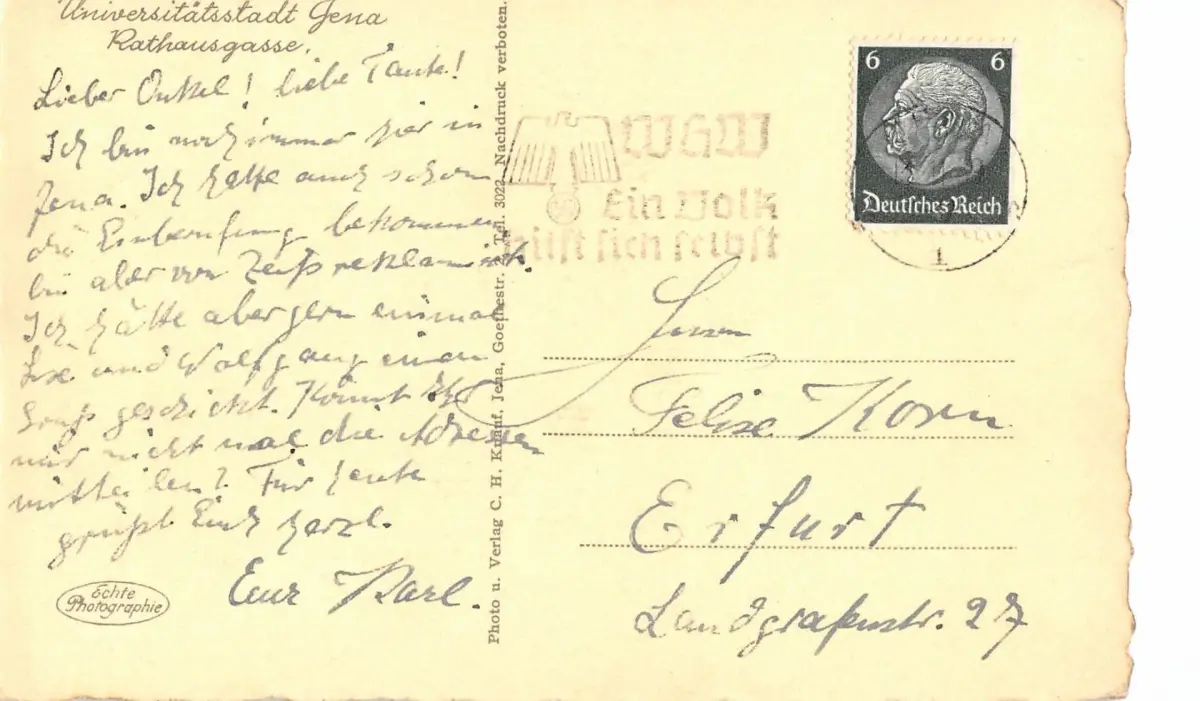 Universitätsstadt Jena
Rathausgasse.
Lieber Onkel! liebe Tante!
Ich bin noch immer hier in
Jena. Ich hatte auch schon
die Einberufung bekommen
bin aber von Zeiß reklamiert.
Ich hätte aber gern einmal
und Wolfgang einen
Gruß geschickt. Könnt Ihr
mir nicht mal die Adressen
mitteilen? Für heute
grüßt Euch herzl.
Eur Karl.
Echte
Photographie
Photo u. Verlag C. H. Knauf, Jena, Goethestr. 2, Tel. 3022. Nachdruck verboten.
WHW
Ein Volk
hilft sich selbst
6 6
Deutsches Reich
1
Herrn
Felix Korn
Erfurt
Landgrafenstr. 27